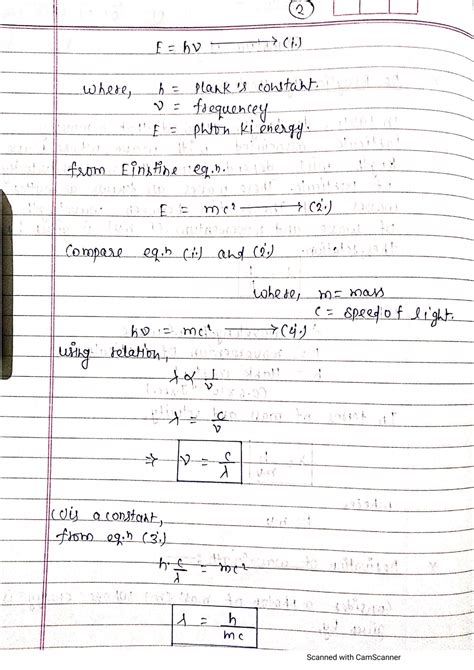 2
E = hν ⟶ (i.)
where, h = Plank's constant.
ν = frequencey
E = phton ki energy.
from Einstine eq.n.
E = mc² ⟶ (2.)
Compare eq.n (i.) and (2.)
where, m = mass
c = speed of light.
hν = mc² ⟶ (4.)
using relation,
λ ∝ 1/ν
λ = c/ν
⇒ ν = c/λ
(c) is a constant,
from eq.n (3.)
h·c/λ = mc²
λ = h/mc
Scanned with CamScanner